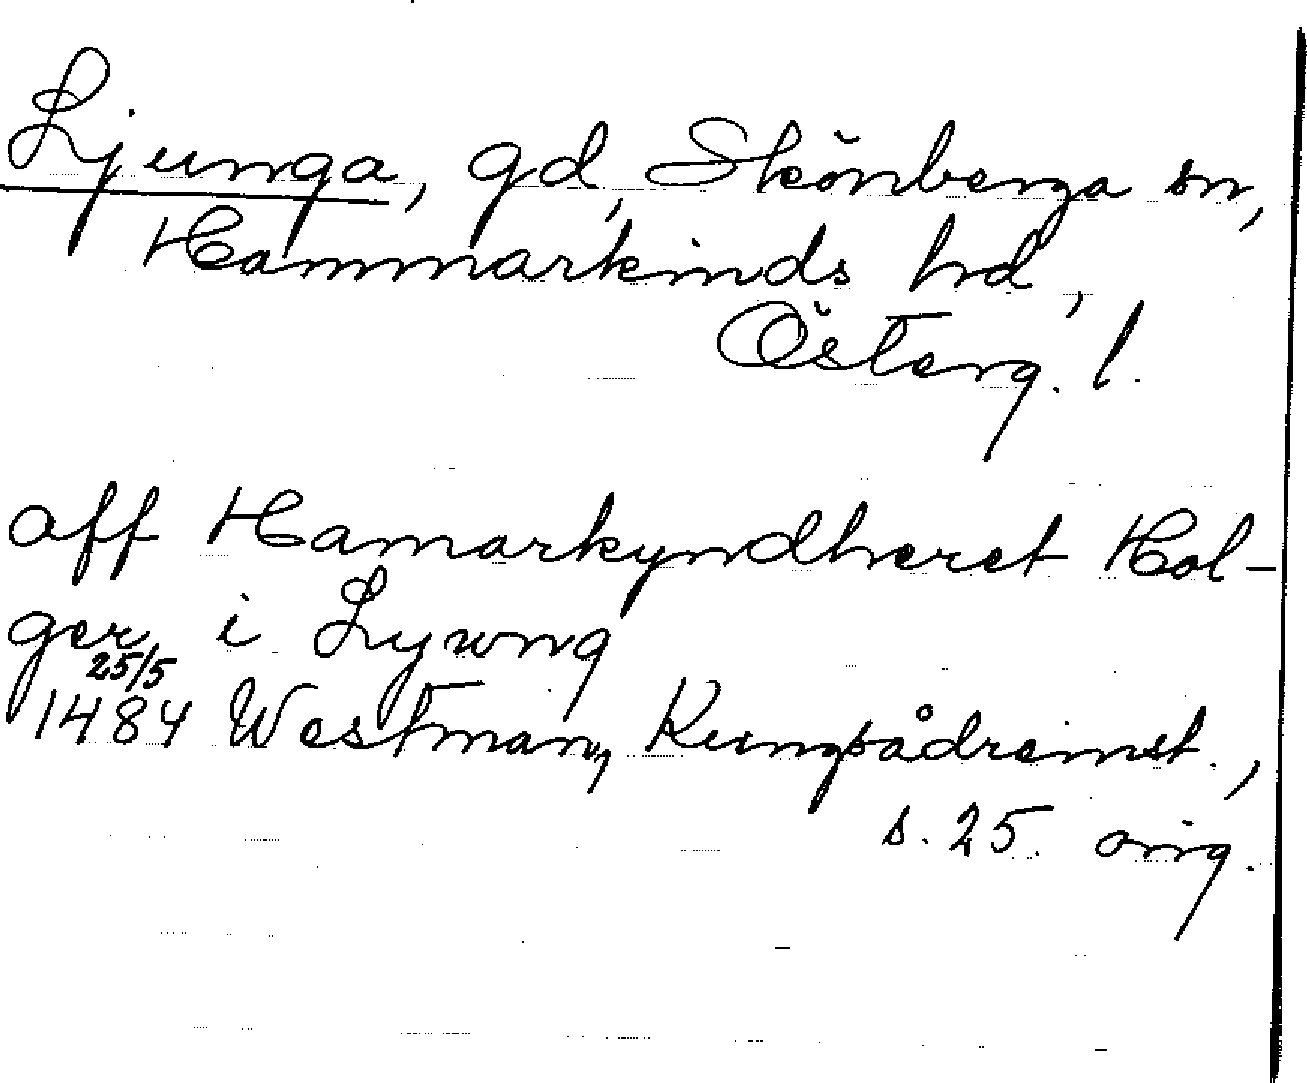 Ljunga, gd, Skönberga sn,
Hammarkinds hd,
Österg. l.
aff Hamarkyndheret Hol-
ger i Lywng
25/5
1484 Westman, Kungsådreinst.,
s. 25. orig.